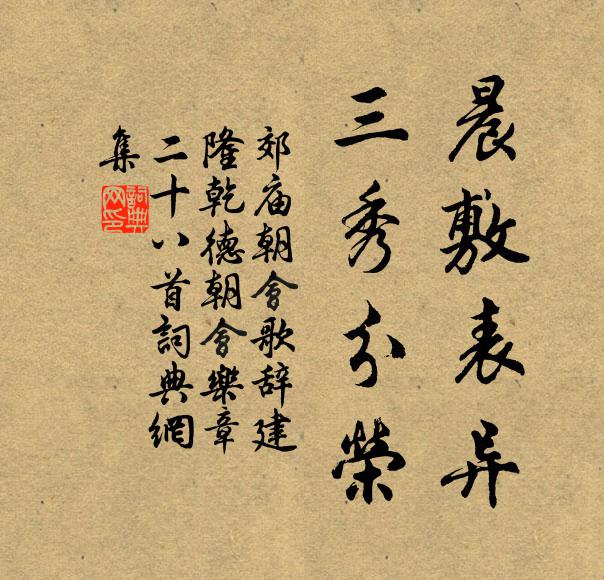 晨敷表异
三秀分荣
郊庙朝会歌辞建
隆乾德朝会樂章
二十八首詞典網
集
詞典网印